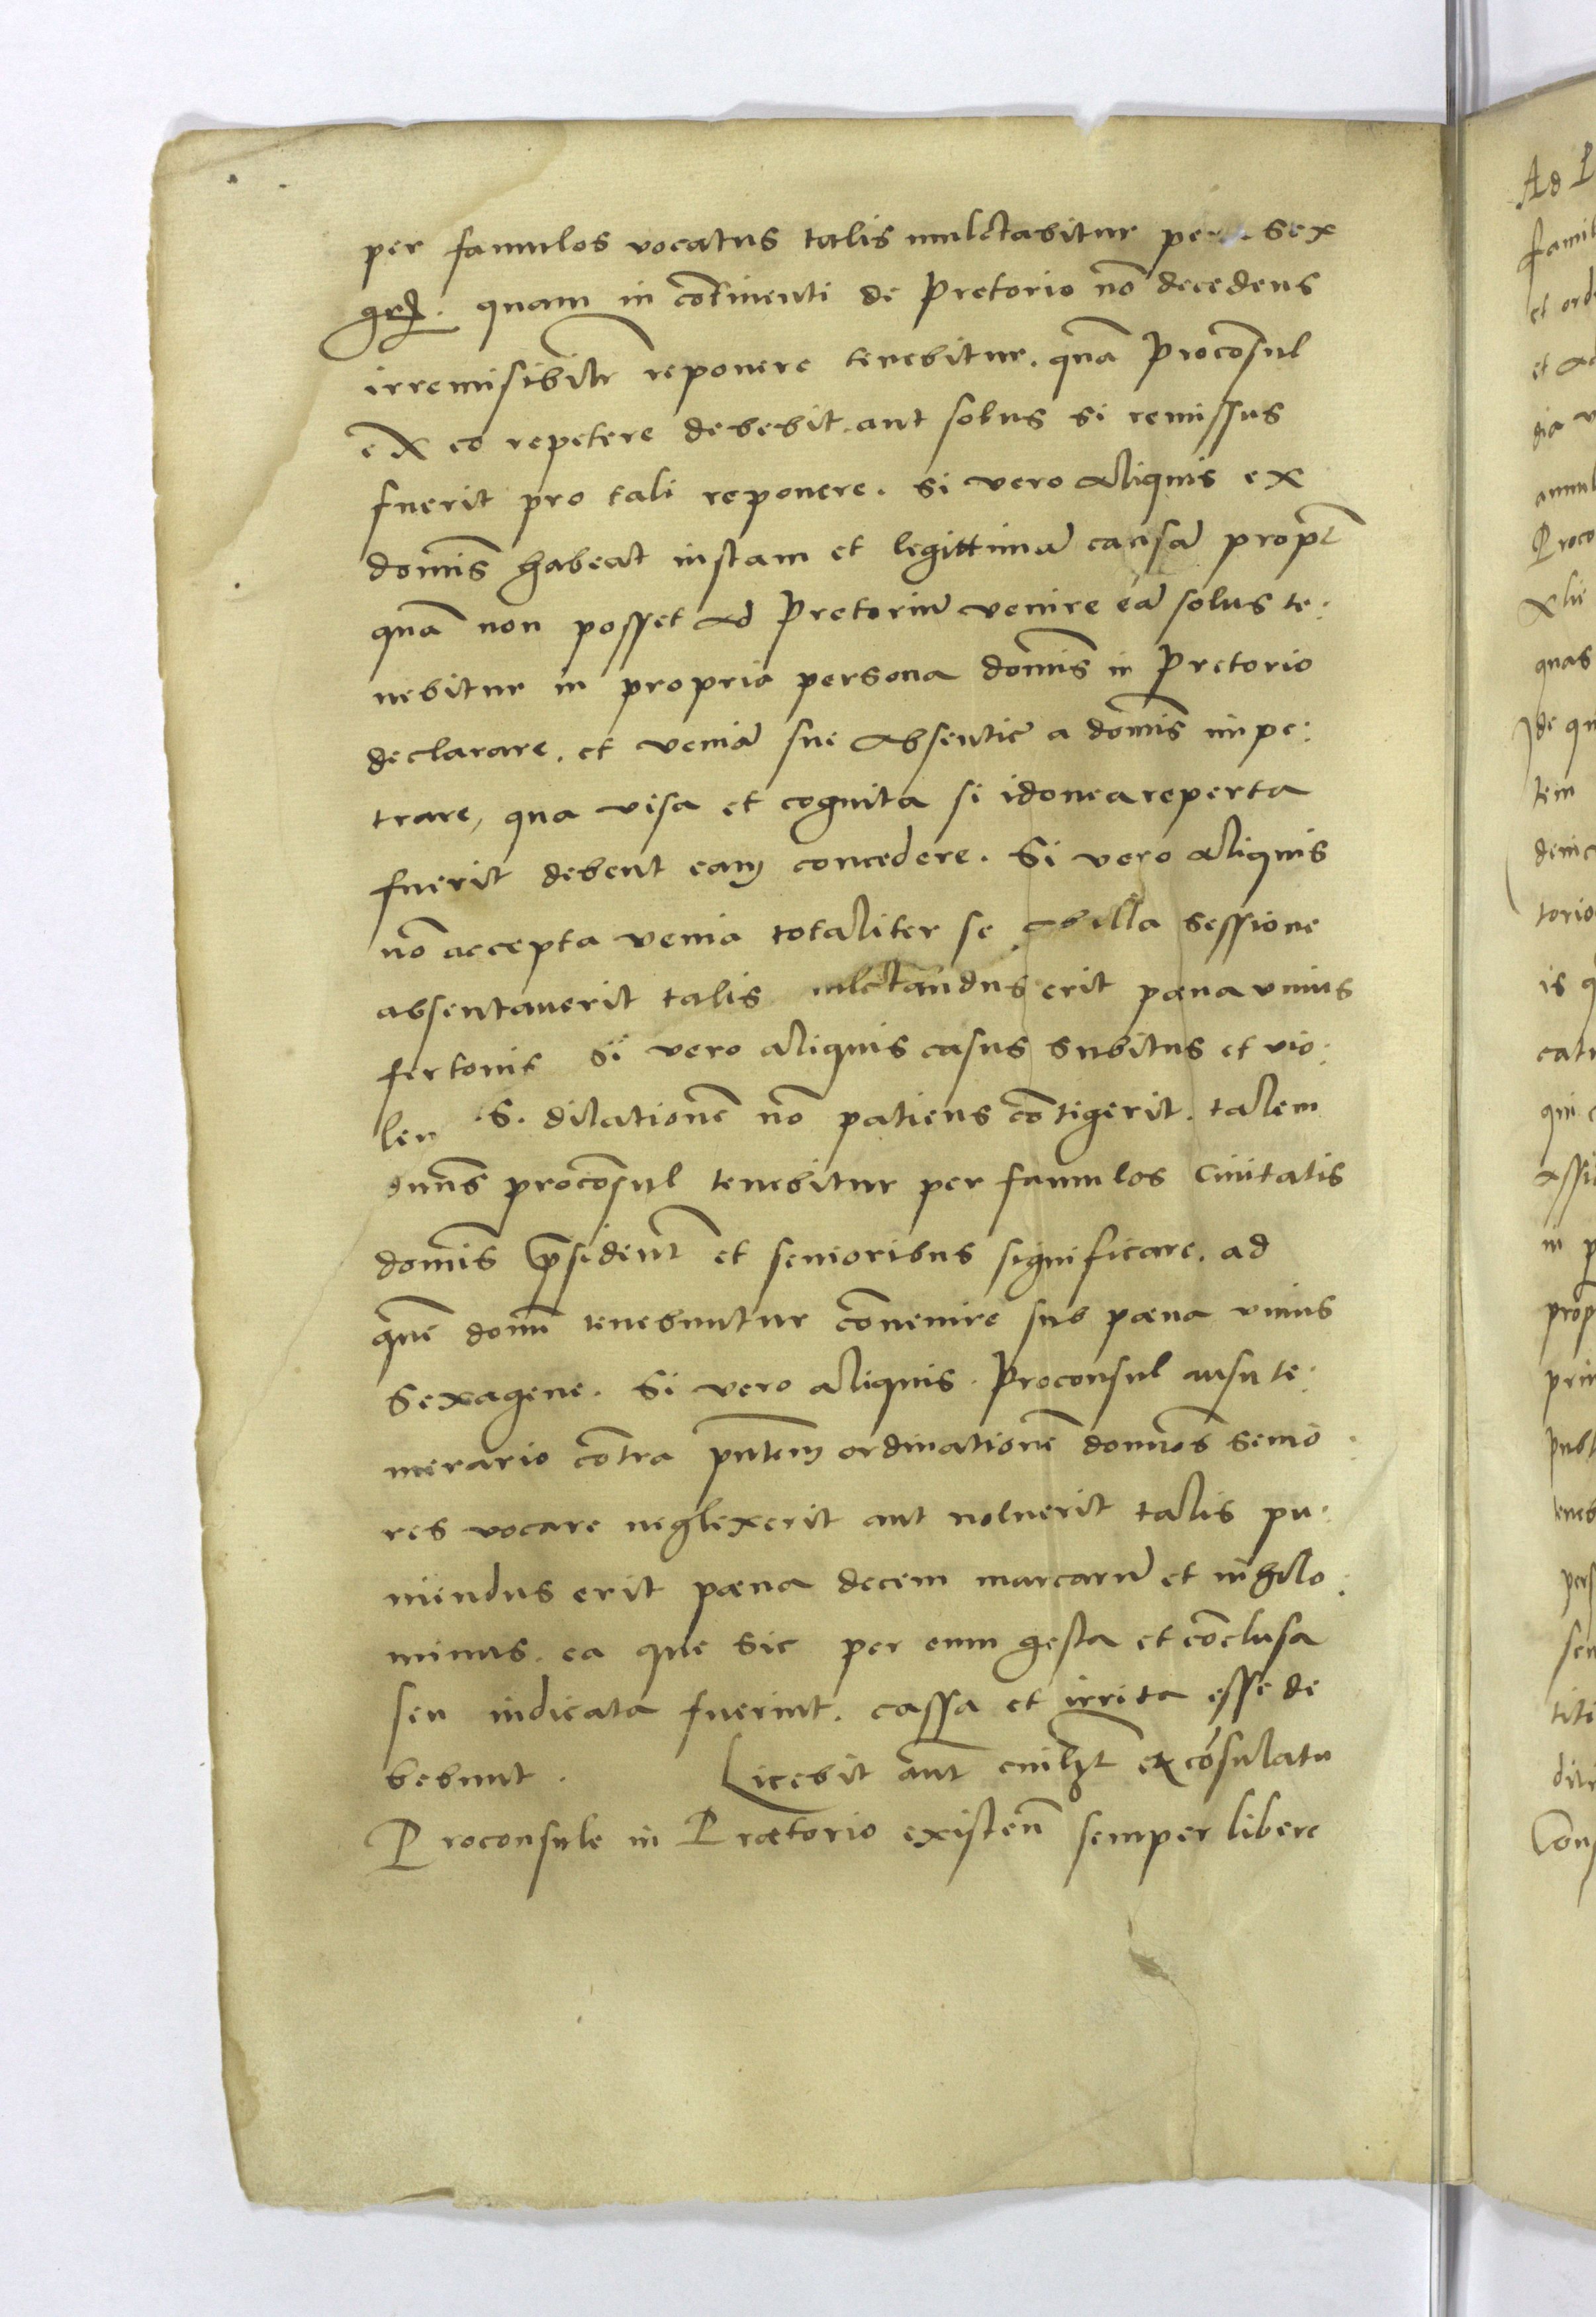 per famulos vocatus talis mulctabitur pena sex
quam in cōtinenti de Pretorio nō decedens
irremisibilr̄ reponere tenebitur. quā Procōsul
ex eo repetere debebit aut solus si remissus
fuerit pro tali reponere. si vero aliquis ex
domīs habeat iustam et legittimā causā propt̄
quā non posset ad Pretoriū venire eā solus te:
nebitur in propria persona domīs in Pretorio
declarare. et veniā sue absentie a domīs impe:
trare, qua visa et cognita si idonea reperta
fuerit debent eam concedere. Si vero aliquis
nō accepta venia totaliter se ab illa sessione
absentauerit talis mulctandus erit pæna vnius
fertonis Si vero aliquis casus subitus et vio:
len s. dilationē nō patiens cōtigerit. talem
dmūs procōsul tenebitur per famulos Ciuitatis
domīs p̄sident̄ et senioribus significare. ad
quē domī tenebuntur cōuenire sub pæna vnius
Sexagene. Si vero aliquis. Proconsul ausu te:
merario cōtra pn̄tem ordinationē domnōs senio:
res vocare neglexerit aut noluerit talis pu:
niendus erit pæna decem marcarū et nihilo:
minus. ea que sic per eum gesta et cōclusa
seu iudicata fuerint. cassa et irrita esse de
bebunt. Licebit aūt cuilꝫt ex cōsulatu
Proconsule in Prætorio existen̄ semper libere
Ad P
famil
et ord
et ad
dia v
annul
Proco
xlii
quas
Ide qu
tem
denic
torio
is q
catu
qui c
assi
in p
prop
prim
publ
teneb
pers
sen
titi
diti
Cons